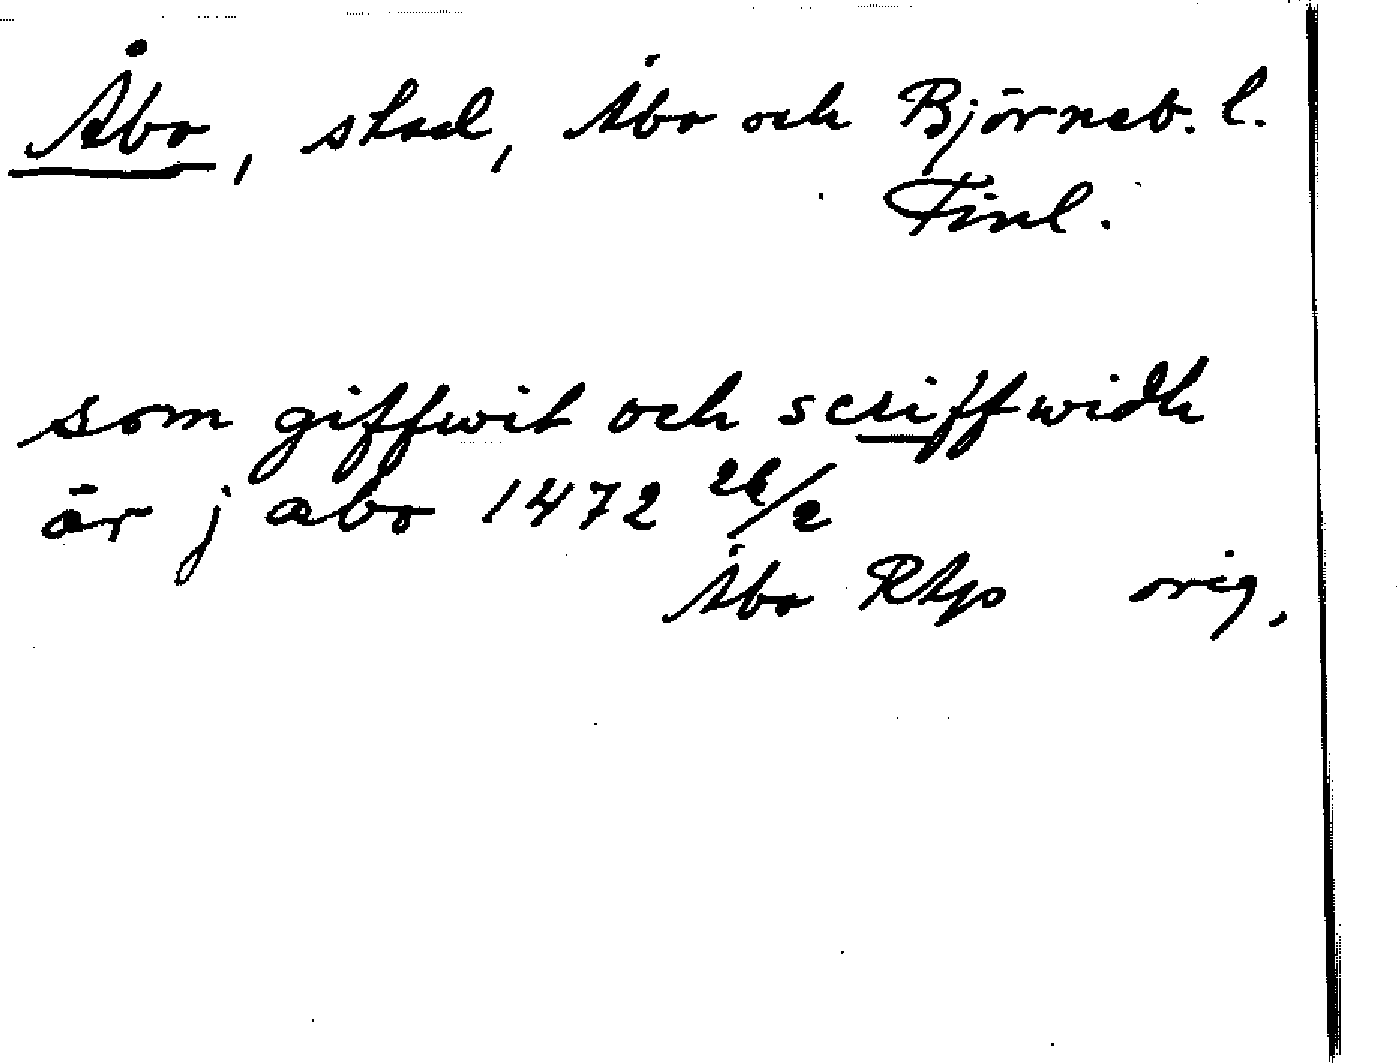 Åbo, stad, Åbo och Björneb. l.
Finl.
som giffwit och scriffwidh
är j abo 1472 26/2
Åbo Rtps orig.